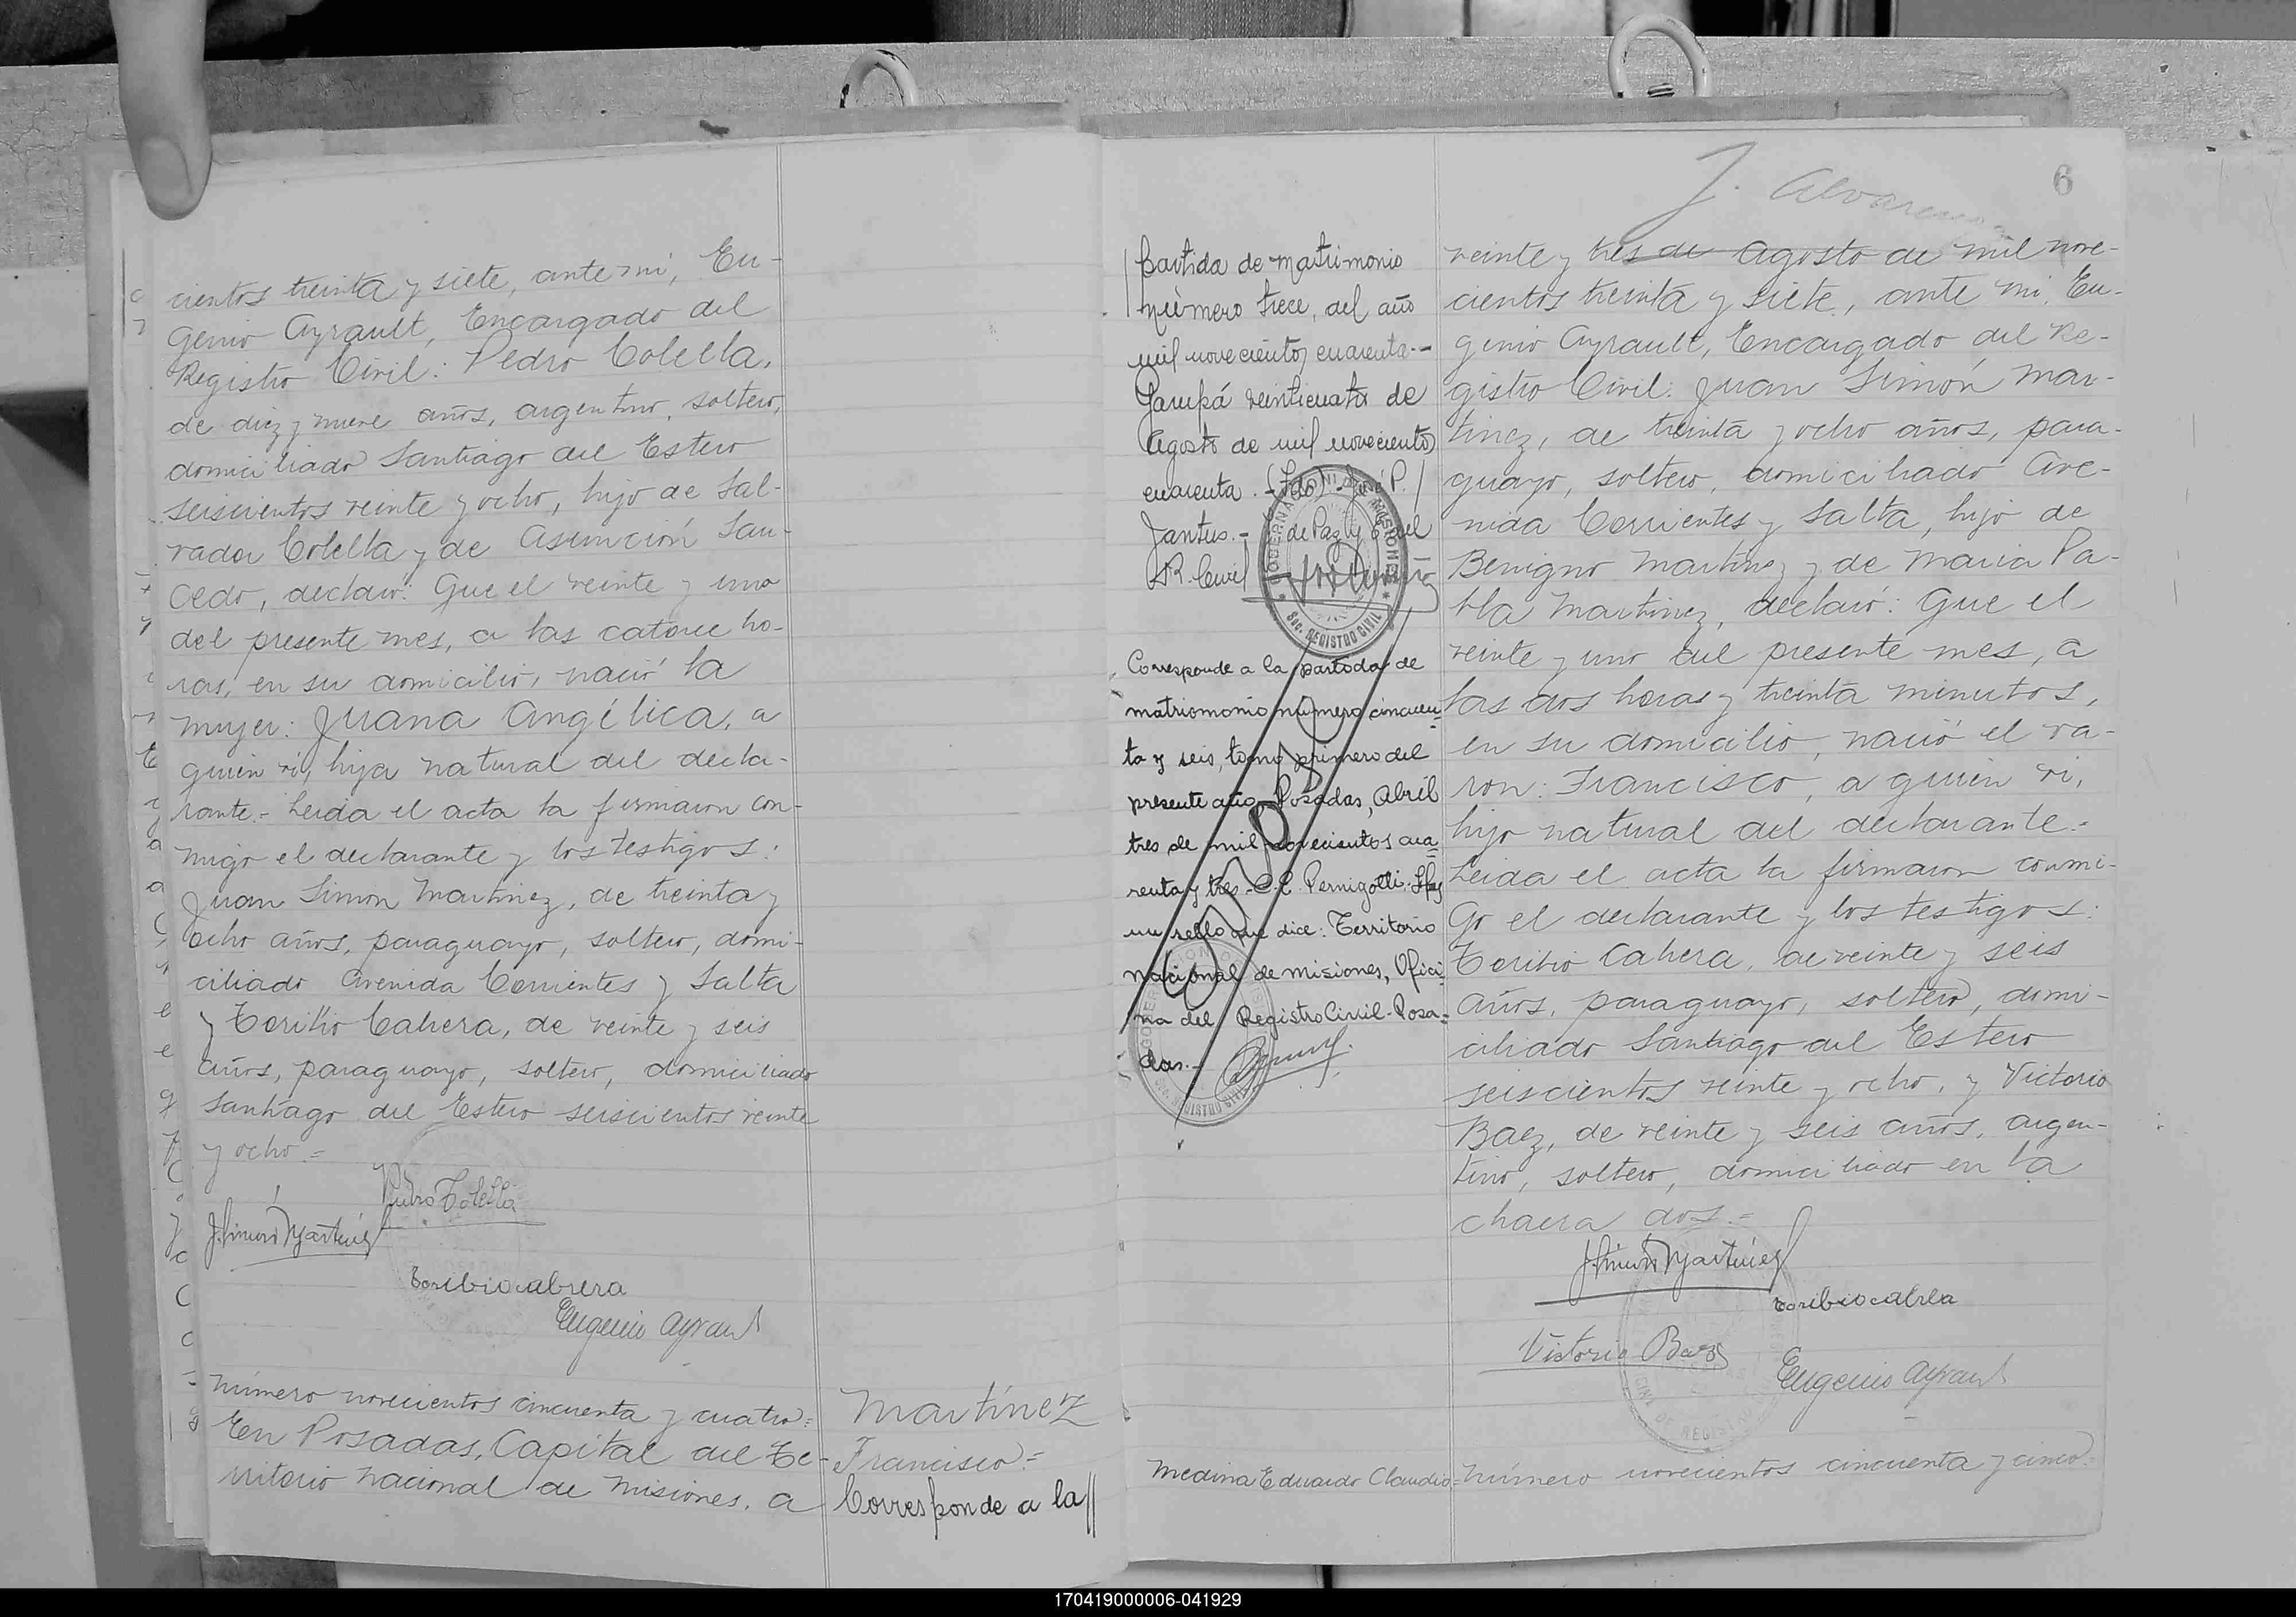 cientos treinta y siete, ante mi, Eu-
genio Ayrault, Encargado del
Registro Civil: Pedro Colella,
de diez y nueve años, argentino, soltero,
domiciliado Santiago del Estero
seiscientos veinte y ocho, hijo de Sal-
vador Colella y de Asunción Sau-
cedo, declaró: Que el veinte y uno
del presente mes, a las catorce ho-
ras, en su domicilio, nació la
mujer: Juana Angélica, a
quien ví, hija natural del decla-
rante.- Leida el acta la firmaron con-
migo el declarante y los testigos:
Juan Simon Martinez, de treinta y
ocho años, paraguayo, soltero, domi-
ciliado Avenida Corrientes y Salta
y Toribio Cabrera, de veinte y seis
años, paraguayo, soltero, domiciliado
Santiago del Estero seiscientos veinte
y ocho.=
Pedro Colella
J. Simón Martínez
toribio cabrera
Eugenio Ayrault
Número novecientos cincuenta y cuatro=
En Posadas, Capital del Te-
rritorio Nacional de Misiones, a
Martínez
Francisco=
Corresponde a la//
J. Alvarenga
6
//partida de matrimonio
número trece, del año
mil novecientos cuarenta.-
Garupá veinticuatro de
Agosto de mil novecientos
cuarenta.-(Fdo)- P.
Jantus.- de Paz y E. del
R. Civil
GOBERNACION DE MISIONES
Sec. REGISTRO CIVIL
Corresponde a la partida de
matriomonio número cincuen=
ta y seis, tomo primero del
presente año, Posadas, Abril
tres de mil novecientos cua=
renta y tres.-C.C. Pernigotti-Hay
un sello que dice: Territorio
nacional de misiones, Ofici=
na del Registro Civil-Posa=
das.-
veinte y tres de Agosto de mil nove-
cientos treinta y siete, ante mi, Eu-
genio Ayrault, Encargado del Re-
gistro Civil: Juan Simón Mar-
tinez, de treinta y ocho años, para-
guayo, soltero, domiciliado Ave-
nida Corrientes y Salta, hijo de
Benigno Martinez y de Maria Pa-
bla Martinez, declaró: Que el
veinte y uno del presente mes, a
las dos horas y treinta minutos,
en su domicilio, nació el va-
ron: Francisco, a quien ví,
hijo natural del declarante.-
Leida el acta la firmaron conmi-
go el declarante y los testigos:
Toribio Cabrera, de veinte y seis
años, paraguayo, soltero, domi-
ciliado Santiago del Estero
seiscientos veinte y ocho, y Victorio
Baez, de veinte y seis años, argen-
tino, soltero, domiciliado en la
chacra dos.=
J. Simón Martínez
toribio cabrera
Victorio Baez
Eugenio Ayrault
Medina Eduardo Claudio=
Número novecientos cincuenta y cinco=
170419000006-041929